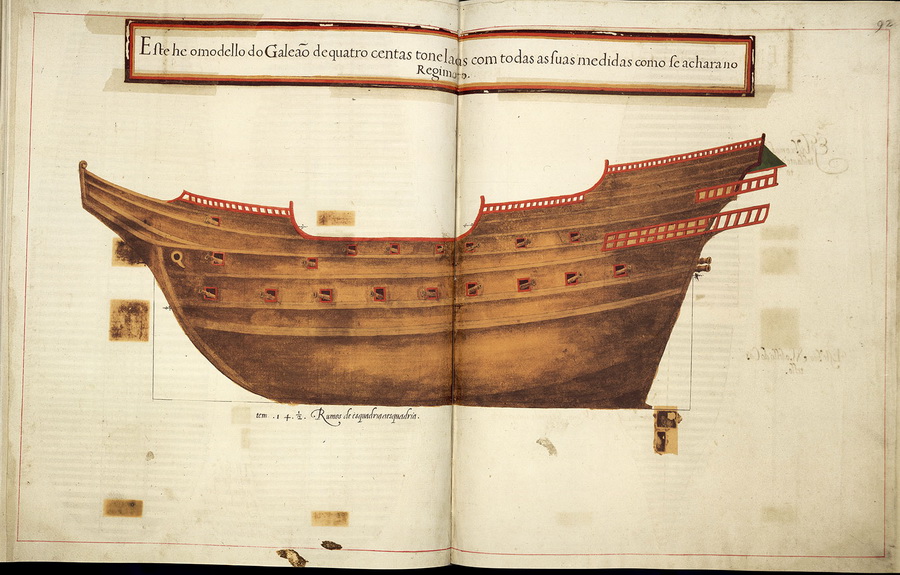 92
Este he o modello do Galeaõ de quatro centas toneladas com todas as suas medidas como se achara no
Regimto.
tem .14.½. Rumos de esquadria a esquadria.